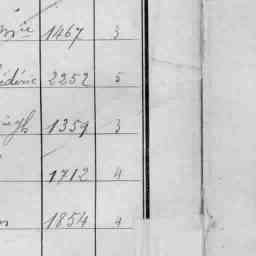 1467 3
édéric 2252 5
1359 3
1712 4
1854 4